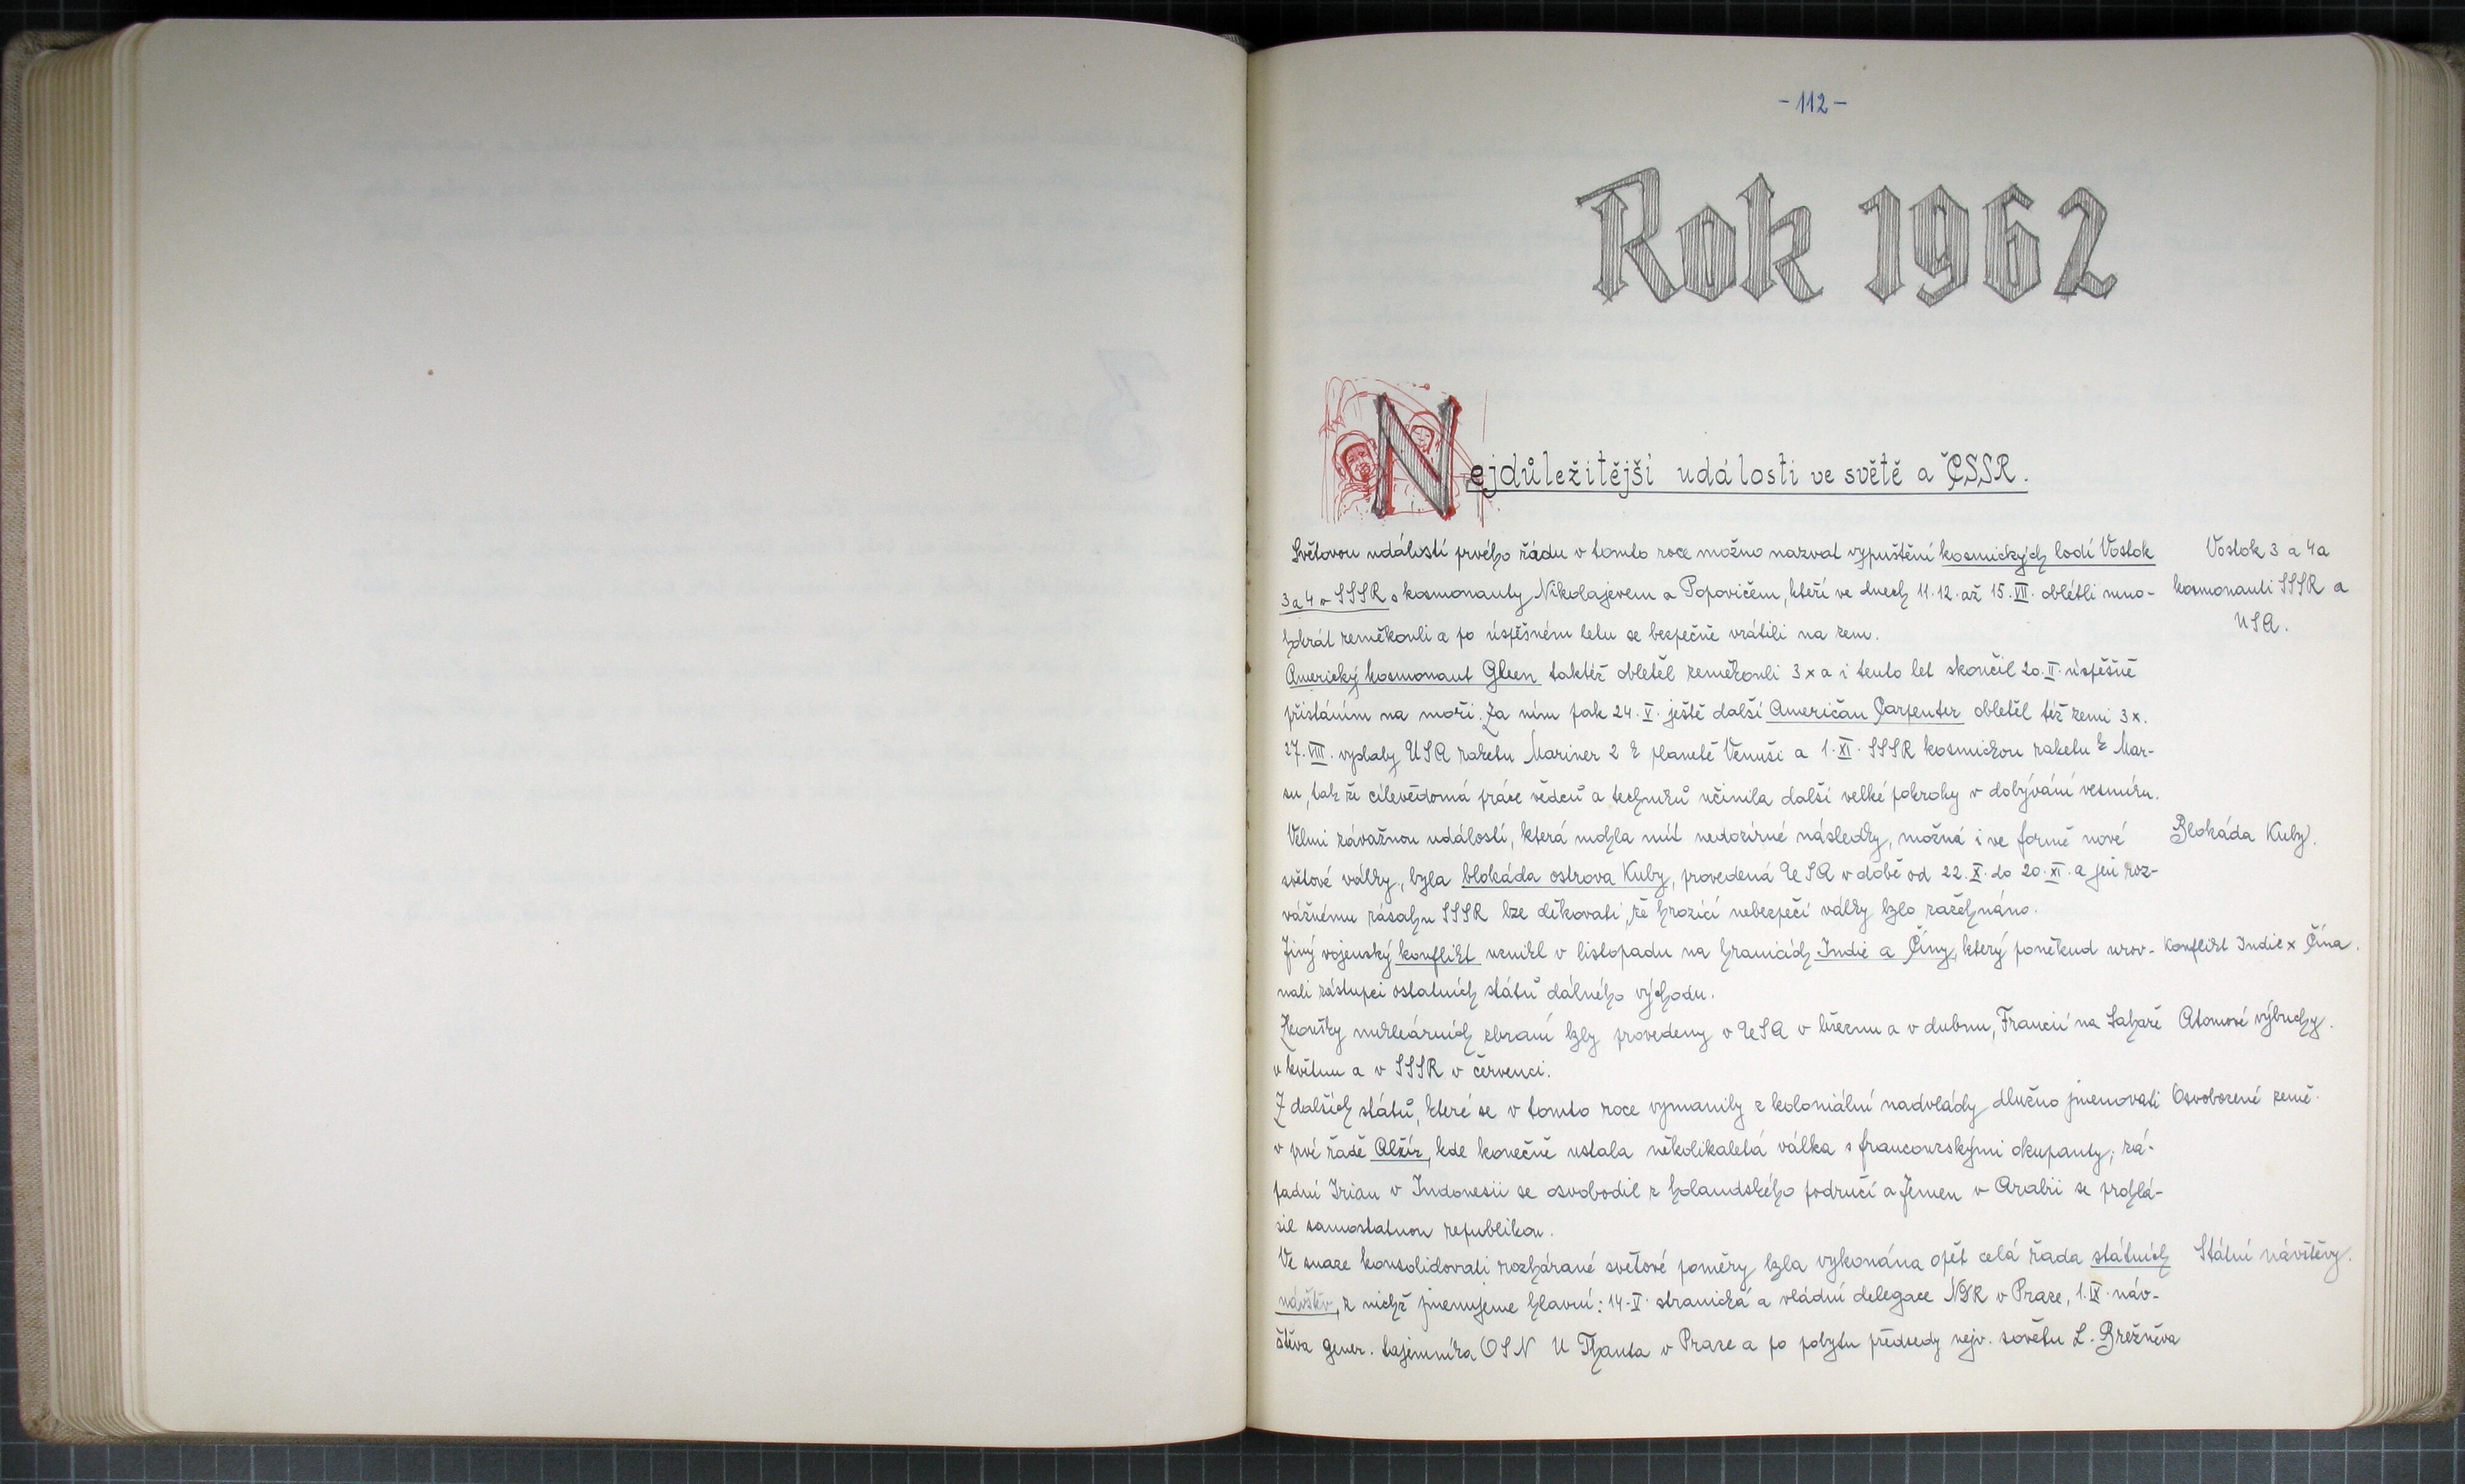 - 112 -
Rok 1962
Nejdůležitější události ve světě a ČSSR.
Světovou událostí prvého řádu v tomto roce možno nazvat vypuštění kosmických lodí Vostok
Vostok 3 a 4 a
3 a 4 v SSSR s kosmonauty Nikolajevem a Popovičem, kteří ve dnech 11. 12. až 15. VII. oblétli mno-
kosmonauti SSSR a
hokrát zeměkouli a po úspěšném letu se bezpečně vrátili na zem.
USA.
Americký kosmonaut Gleen taktéž obletěl zeměkouli 3 x a i tento let skončil 20. II. úspěšně
přistáním na moři. Za ním pak 24. V. ještě další Američan Carpenter obletěl též zemi 3 x.
27. VIII. vyslaly USA raketu Mariner 2 k planetě Venuši a 1. XI. SSSR kosmickou raketu k Mar-
su, tak že cílevědomá práce vědců a techniků učinila další velké pokroky v dobývání vesmíru.
Velmi závažnou událostí, která mohla mít nedozírné následky, možná i ve formě nové
Blokáda Kuby.
světové války, byla blokáda ostrova Kuby, provedená USA v době od 22. X. do 20. XI. a jen roz-
vážnému zásahu SSSR lze děkovati, že hrozící nebezpečí války bylo zažehnáno.
Jiný vojenský konflikt vznikl v listopadu na hranicích Indie a Číny, který poněkud urov-
Konflikt Indie x Čína.
nali zástupci ostatních států dálného východu.
Zkoušky nukleárních zbraní byly provedeny v USA v březnu a v dubnu, Francií na Sahaře
Atomové výbuchy.
v květnu a v SSSR v červenci.
Z dalších států, které se v tomto roce vymanily z koloniální nadvlády dlužno jmenovati
Osvobozené země.
v prvé řadě Alžír, kde konečně ustala několikaletá válka s francouzskými okupanty; zá-
padní Irian v Indonesii se osvobodil z holandského područí a Jemen v Arabii se prohlá-
sil samostatnou republikou.
Ve snaze konsolidovati rozhárané světové poměry byla vykonána opět celá řada státních
Státní návštěvy.
návštěv, z nichž jmenujeme hlavní: 14. V. stranická a vládní delegace NDR v Praze, 1. IX. náv-
štěva gener. tajemníka OSN U Thanta v Praze a po pobytu předsedy nejv. sovětu L. Brežněva